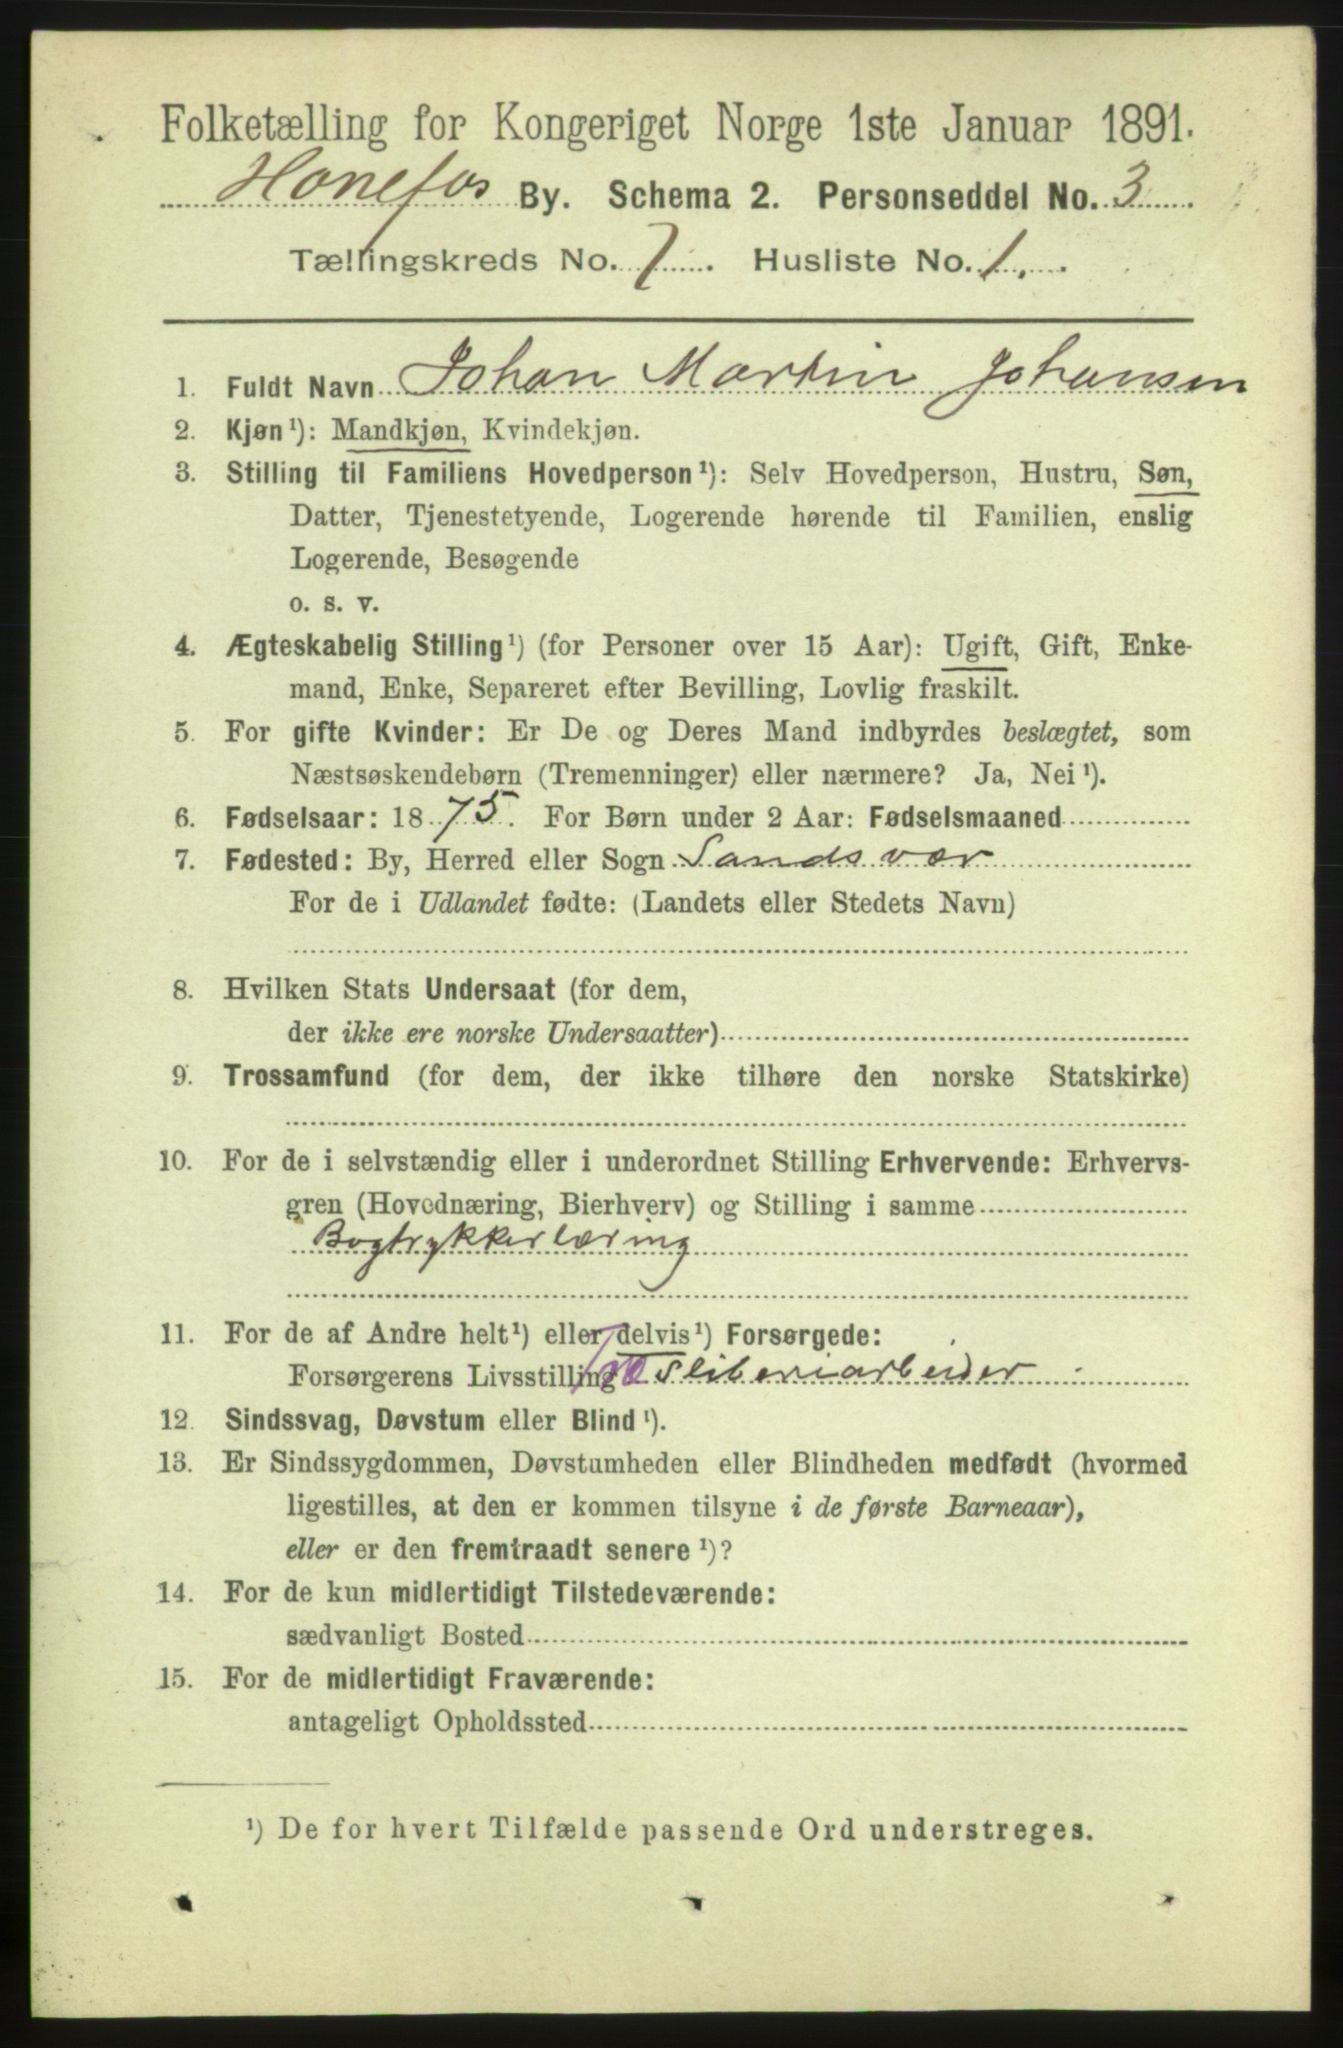 Folketælling for Kongeriget Norge 1ste Januar 1891.
Hønefos By. Schema 2. Personseddel No. 3
Tællingskreds No. 7. Husliste No. 1.
1. Fuldt Navn Johan Martin Johansen
2. Kjøn¹): Mandkjøn, Kvindekjøn.
3. Stilling til Familiens Hovedperson¹): Selv Hovedperson, Hustru, Søn,
Datter, Tjenestetyende, Logerende hørende til Familien, enslig
Logerende, Besøgende
o. s. v.
4. Ægteskabelig Stilling¹) (for Personer over 15 Aar): Ugift, Gift, Enke-
mand, Enke, Separeret efter Bevilling, Lovlig fraskilt.
5. For gifte Kvinder: Er De og Deres Mand indbyrdes beslægtet, som
Næstsøskendebørn (Tremenninger) eller nærmere? Ja, Nei¹).
6. Fødselsaar: 1875. For Børn under 2 Aar: Fødselsmaaned
7. Fødested: By, Herred eller Sogn Sandsvær
For de i Udlandet fødte: (Landets eller Stedets Navn)
8. Hvilken Stats Undersaat (for dem,
der ikke ere norske Undersaatter)
9. Trossamfund (for dem, der ikke tilhøre den norske Statskirke)
10. For de i selvstændig eller i underordnet Stilling Erhvervende: Erhvervs-
gren (Hovednæring, Bierhverv) og Stilling i samme
Bogtrykkerlæring
11. For de af Andre helt¹) eller delvis¹) Forsørgede:
Forsørgerens Livsstilling Træsliberiarbeider
12. Sindssvag, Døvstum eller Blind¹).
13. Er Sindssygdommen, Døvstumheden eller Blindheden medfødt (hvormed
ligestilles, at den er kommen tilsyne i de første Barneaar),
eller er den fremtraadt senere¹)?
14. For de kun midlertidigt Tilstedeværende:
sædvanligt Bosted
15. For de midlertidigt Fraværende:
antageligt Opholdssted
¹) De for hvert Tilfælde passende Ord understreges.